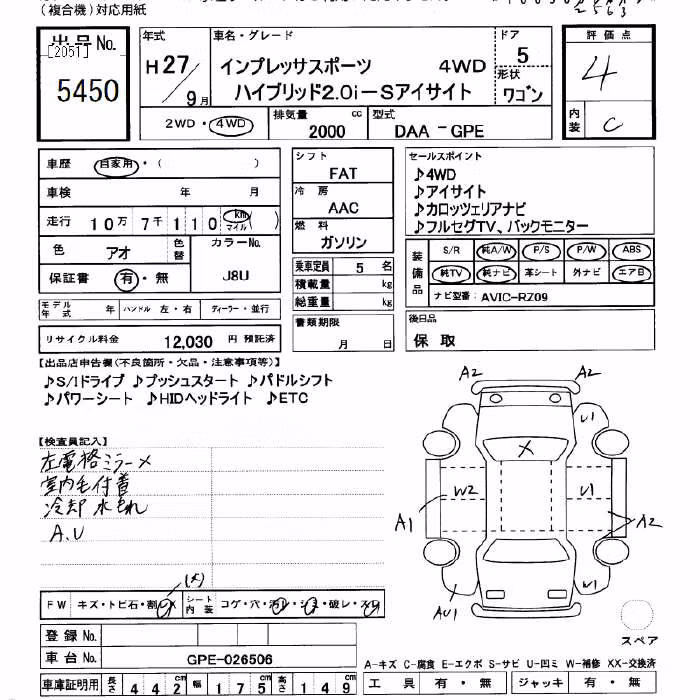 (複合機)対応用紙
2563
出品No.
[2051]
5450
年式
H27/9月
車名・グレード
インプレッサスポーツ 4WD
ハイブリッド2.0i-Sアイサイト
ドア
5
形状
ワゴン
2WD・4WD
排気量 2000 cc
型式 DAA -GPE
評価点
4
内装
C
車歴 自家用・( )
車検 年 月
走行 10万7千110 km マイル ( )
色 アオ 色替
カラーNo. J8U
保証書 有・無
シフト
FAT
冷房
AAC
燃料
ガソリン
乗車定員 5 名
積載量 kg
総重量 kg
セールスポイント
♪4WD
♪アイサイト
♪カロッツェリアナビ
♪フルセグTV、バックモニター
装備品
S/R 純A/W P/S P/W ABS
純TV 純ナビ 革シート 外ナビ エアB
ナビ型番: AVIC-RZ09
モデル年式 年 ハンドル 左・右 ディーラー・並行
リサイクル料金 12,030 円 預託済
書類期限
月 日
後日品
保取
【出品店申告欄(不良箇所・欠品・注意事項等)】
♪S/Iドライブ ♪プッシュスタート ♪パドルシフト
♪パワーシート ♪HIDヘッドライト ♪ETC
【検査員記入】
左電格ミラーメ
室内毛付着
冷却水もれ
A.U
A2 A2
U1
X
W2 U1
A1 A2
AU1
スペア
(X)
FW キズ・トビ石・割・X シート内装 コゲ・穴・汚レ・シミ・破レ・スレ
登録No.
車台No. GPE-026506
車庫証明用 長さ 442cm 幅 175cm 高さ 149cm
A-キズ C-腐食 E-エクボ S-サビ U-凹ミ W-補修 XX-交換済
工具 有・無 ジャッキ 有・無